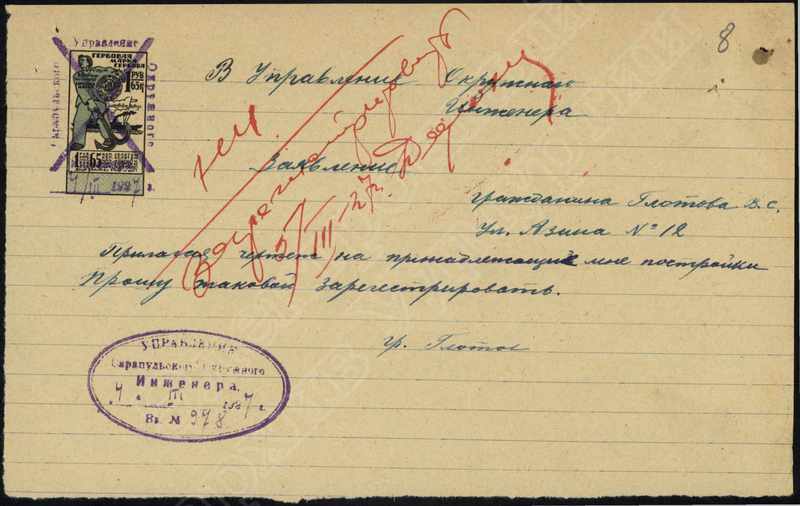 8
Управление
Сарапульского
Окружного
ГЕРБОВАЯ
МАРКА
РУБ
65
4 III 1927
В Управление Окружного
Инженера
Заявление
гражданина Глотова В. С.
Ул. Азина № 12
Прилагая чертеж на принадлежащие мне постройки
Прошу таковой зарегестрировать.
гр. Глотов
5/III-27г.
УПРАВЛЕНИЕ
Сарапульского Окружного
Инженера
4 III 1927 г.
Вх. № 398